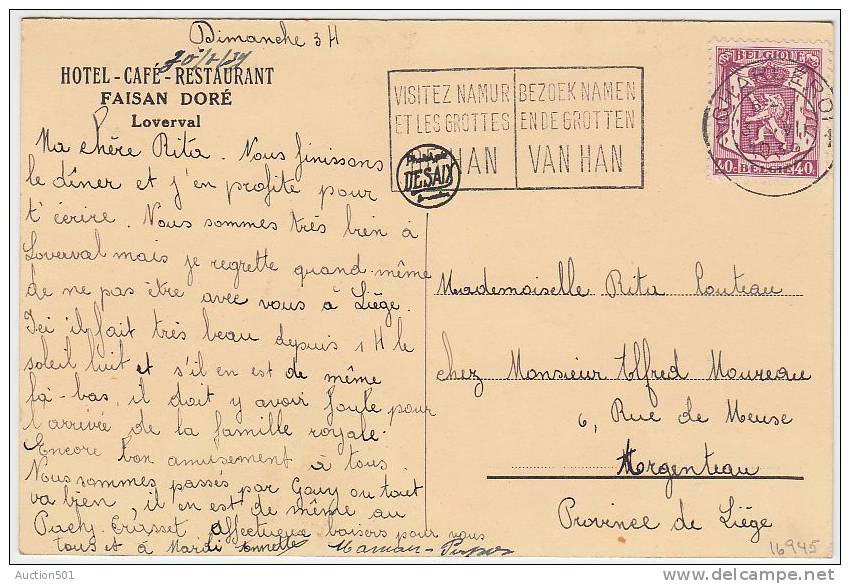 Dimanche 3H
30/7/39
HOTEL - CAFÉ - RESTAURANT
FAISAN DORÉ
Loverval
Ma chère Rita. Nous finissons
le dîner et j'en profite pour
t'écrire. Nous sommes très bien à
Loverval mais je regrette quand-même
de ne pas être avec vous à Liège.
Ici il fait très beau depuis 1 H le
soleil luit et s'il en est de même
là-bas, il doit y avoir foule pour
l'arrivée de la famille royale.
Encore bon amusement à tous.
Nous sommes passés par Gouy où tout
va bien, il en est de même au
affectueux baisers pour vous
tous et à Mardi Annette Maman -
VISITEZ NAMUR
ET LES GROTTES
HAN
BEZOEK NAMEN
EN DE GROTTEN
VAN HAN
DESAIX
BELGIQUE
40c BELGIË 40c
CHARLEROI
Mademoiselle Rita Louteau
chez Monsieur Alfred Moureau
6, Rue de Meuse
Argenteau
Province de Liège
16945
©Auction501
delcampe.net